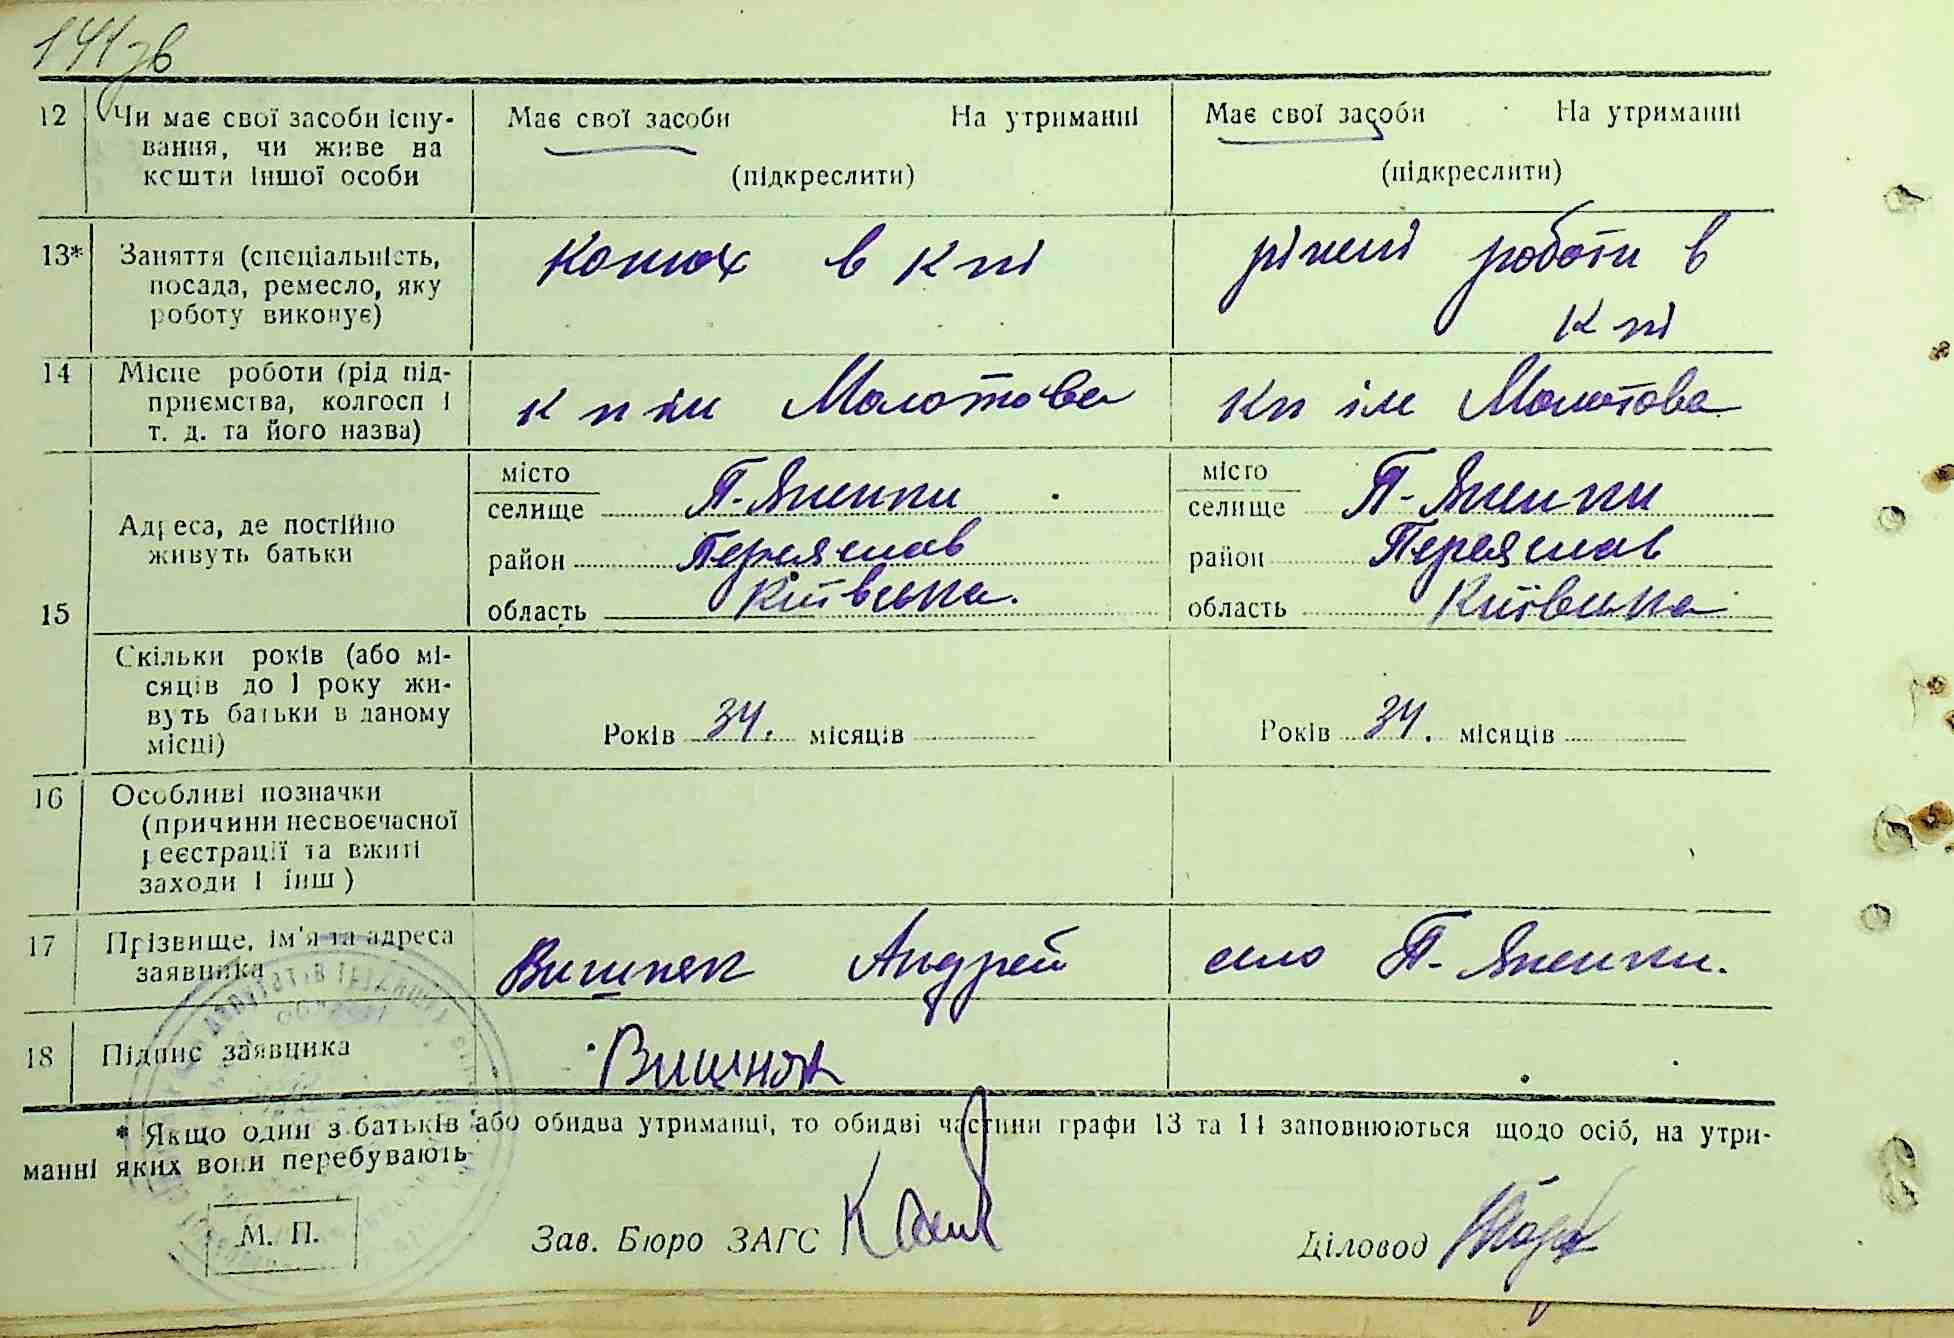 141зв
12 Чи має свої засоби існу- Має свої засоби На утриманні Має свої засоби На утриманні
вання, чи живе на
кошти іншої особи (підкреслити) (підкреслити)
13* Заняття (спеціальність, Конюх в кпі ріжні роботи в
посада, ремесло, яку
роботу виконує) кпі
14 Місце роботи (рід під-
приємства, колгосп і к п ім Молотова кп ім Молотова
т. д. та його назва)
місто місто
селище П-Яненки селище П-Яненки
Адреса, де постійно
живуть батьки район Переяслав район Переяслав
15 область Київська. область Київська
Скільки років (або мі-
сяців до 1 року жи-
вуть батьки в даному
місці) Років 34. місяців Років 34. місяців
16 Особливі позначки
(причини несвоєчасної
реєстрації та вжиті
заходи і інш)
17 Прізвище, ім'я та адреса
заявника Вишняк Андрей село П-Яненки.
18 Підпис заявника Вишняк
* Якщо один з батьків або обидва утриманці, то обидві частини графи 13 та 14 заповнюються щодо осіб, на утри-
манні яких вони перебувають
М. П. Зав. Бюро ЗАГС Діловод